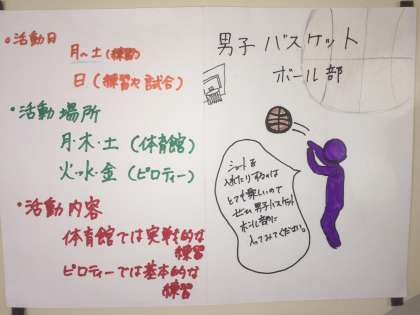 ・活動日
月〜土(練習)
日(練習や試合)
・活動場所
月・木・土(体育館)
火・水・金(ピロティー)
・活動内容
体育館では実戦的な
練習
ピロティーでは基本的な
練習
男子バスケット
ボール部
シュートを
入れたりするのは
とても楽しいので
ぜひ男子バスケット
ボール部に
入ってみてください。